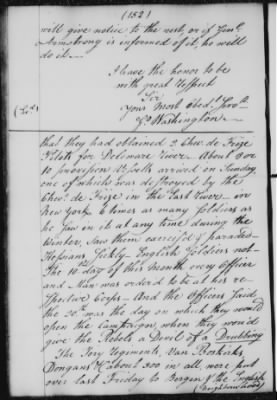 (152)
will give notice to the rest, or if Genl.
Armstrong is informed of it he will
do it.—
I have the honor to be
with great respect
Sir
Your most obedt. Servt.
Go. Washington
that they had obtained 2 Chev. de Frize
Pilots for Delaware River. About 8 or
10 provision Vessells arrived on Sunday,
one of which was destroyed by the
Chev. de Frize in the East River — in
New York 6 times as many Soldiers as
he saw in it at any time during the
Winter, saw them exercise & parade—
Hessians Sickly—English Soldiers not—
The 10th day of this Month every Officer
and Man was ordered to be at his re-
spective Corps — And the Officers said
the 20th was the day on which they would
open the Campaign when they would
give the Rebels a Devil of a Drubbing
The Tory Regiments, Van Buskirks,
Dongans & about 300 in all more put
over last Friday to Bergen & the English
Neighbourhood